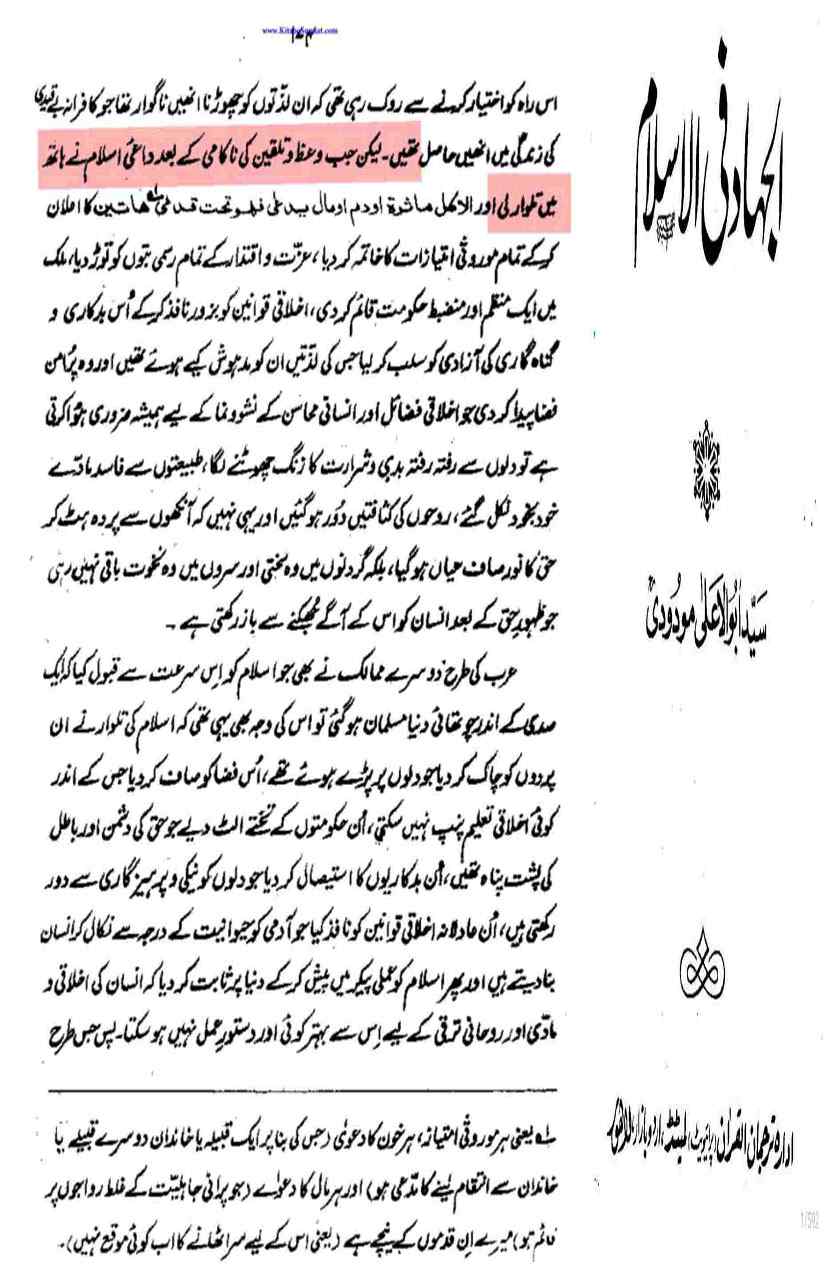 www.KitaboSunnat.com
۱۷۴
اس راہ کو اختیار کرنے سے روک رہی تھی کہ ان لذتوں کو چھوڑنا انھیں ناگوار تھا جو کافرانہ بے قیدی
کی زندگی میں انھیں حاصل تھیں۔ لیکن جب وعظ و تلقین کی ناکامی کے بعد داعیٔ اسلام نے ہاتھ
میں تلوار لی اور الا کل ماثرۃ او دم او مال یدعی فھو تحت قدمی ھاتین کا اعلان
کر کے تمام موروثی امتیازات کا خاتمہ کر دیا، عزت و اقتدار کے تمام رسمی بتوں کو توڑ دیا، ملک
میں ایک منظم اور منضبط حکومت قائم کر دی، اخلاقی قوانین کو بزور نافذ کر کے اُس بدکاری و
گناہ گاری کی آزادی کو سلب کر لیا جس کی لذتیں ان کو مدہوش کیے ہوئے تھیں اور وہ پُرامن
فضا پیدا کر دی جو اخلاقی فضائل اور انسانی محاسن کے نشوونما کے لیے ہمیشہ ضروری ہوا کرتی
ہے تو دلوں سے رفتہ رفتہ بدی و شرارت کا زنگ چھوٹنے لگا، طبیعتوں سے فاسد مادّے
خود بخود نکل گئے، روحوں کی کثافتیں دُور ہو گئیں اور یہی نہیں کہ آنکھوں سے پردہ ہٹ کر
حق کا نور صاف عیاں ہو گیا، بلکہ گردنوں میں وہ سختی اور سروں میں وہ نخوت باقی نہیں رہی
جو ظہورِ حق کے بعد انسان کو اس کے آگے جُھکنے سے باز رکھتی ہے۔
عرب کی طرح دوسرے ممالک نے بھی جو اسلام کو اِس سرعت سے قبول کیا کہ ایک
صدی کے اندر چوتھائی دنیا مسلمان ہو گئی تو اس کی وجہ بھی یہی تھی کہ اسلام کی تلوار نے ان
پردوں کو چاک کر دیا جو دلوں پر پڑے ہوئے تھے، اُس فضا کو صاف کر دیا جس کے اندر
کوئی اخلاقی تعلیم پنپ نہیں سکتی، اُن حکومتوں کے تختے الٹ دیے جو حق کی دشمن اور باطل
کی پشت پناہ تھیں، اُن بدکاریوں کا استیصال کر دیا جو دلوں کو نیکی و پرہیزگاری سے دور
رکھتی ہیں، اُن عادلانہ اخلاقی قوانین کو نافذ کیا جو آدمی کو حیوانیت کے درجہ سے نکال کر انسان
بنا دیتے ہیں اور پھر اسلام کو عملی پیکر میں پیش کر کے دنیا پر ثابت کر دیا کہ انسان کی اخلاقی و
مادّی اور روحانی ترقی کے لیے اِس سے بہتر کوئی اور دستورِ عمل نہیں ہو سکتا۔ پس جس طرح
لہ یعنی ہر موروثی امتیاز، ہر خون کا دعویٰ (جس کی بنا پر ایک قبیلہ یا خاندان دوسرے قبیلے یا
خاندان سے انتقام لینے کا مدّعی ہو) اور ہر مال کا دعوٰے (جو پرانی جاہلیت کے غلط رواجوں پر
قائم ہو) میرے اِن قدموں کے نیچے ہے (یعنی اس کے لیے سر اٹھانے کا اب کوئی موقع نہیں)۔
الجہاد فی الاسلام
سیّد ابوالاعلیٰ مودودیؒ
ادارہ ترجمان القرآن (پرائیویٹ) لمیٹڈ، اردو بازار، لاہور
1/592